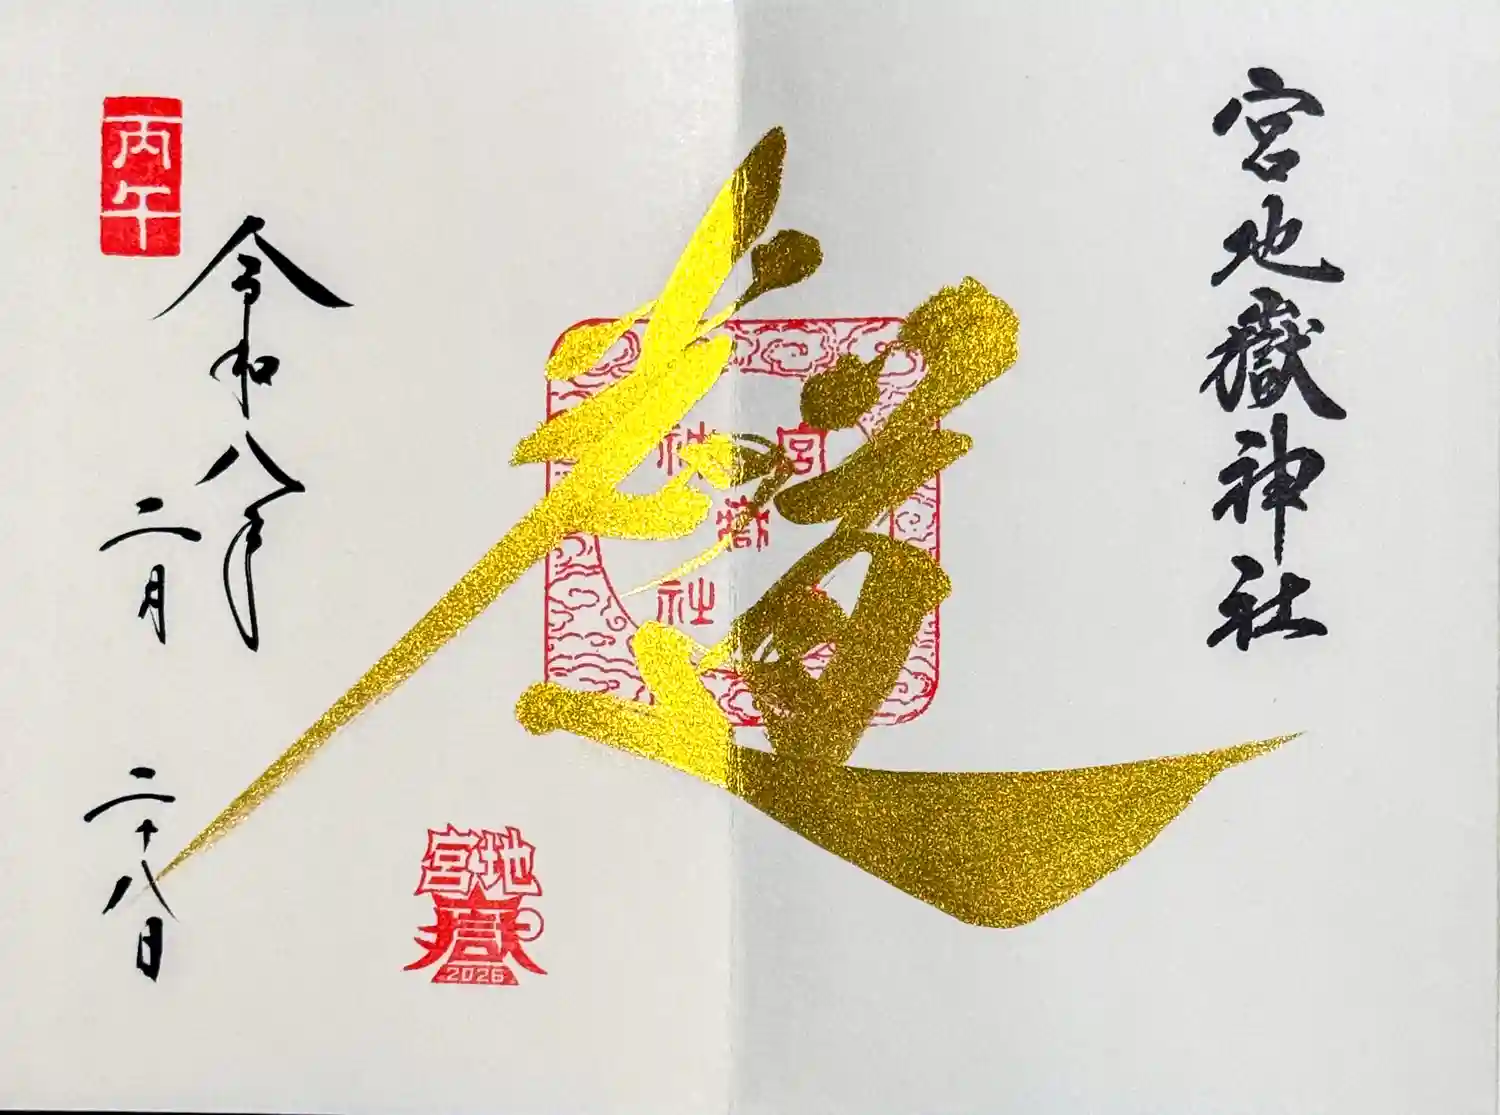 宮地嶽神社
光の道
宮
嶽
社
令和八年
二月
二十八日
丙午
宮地
2026